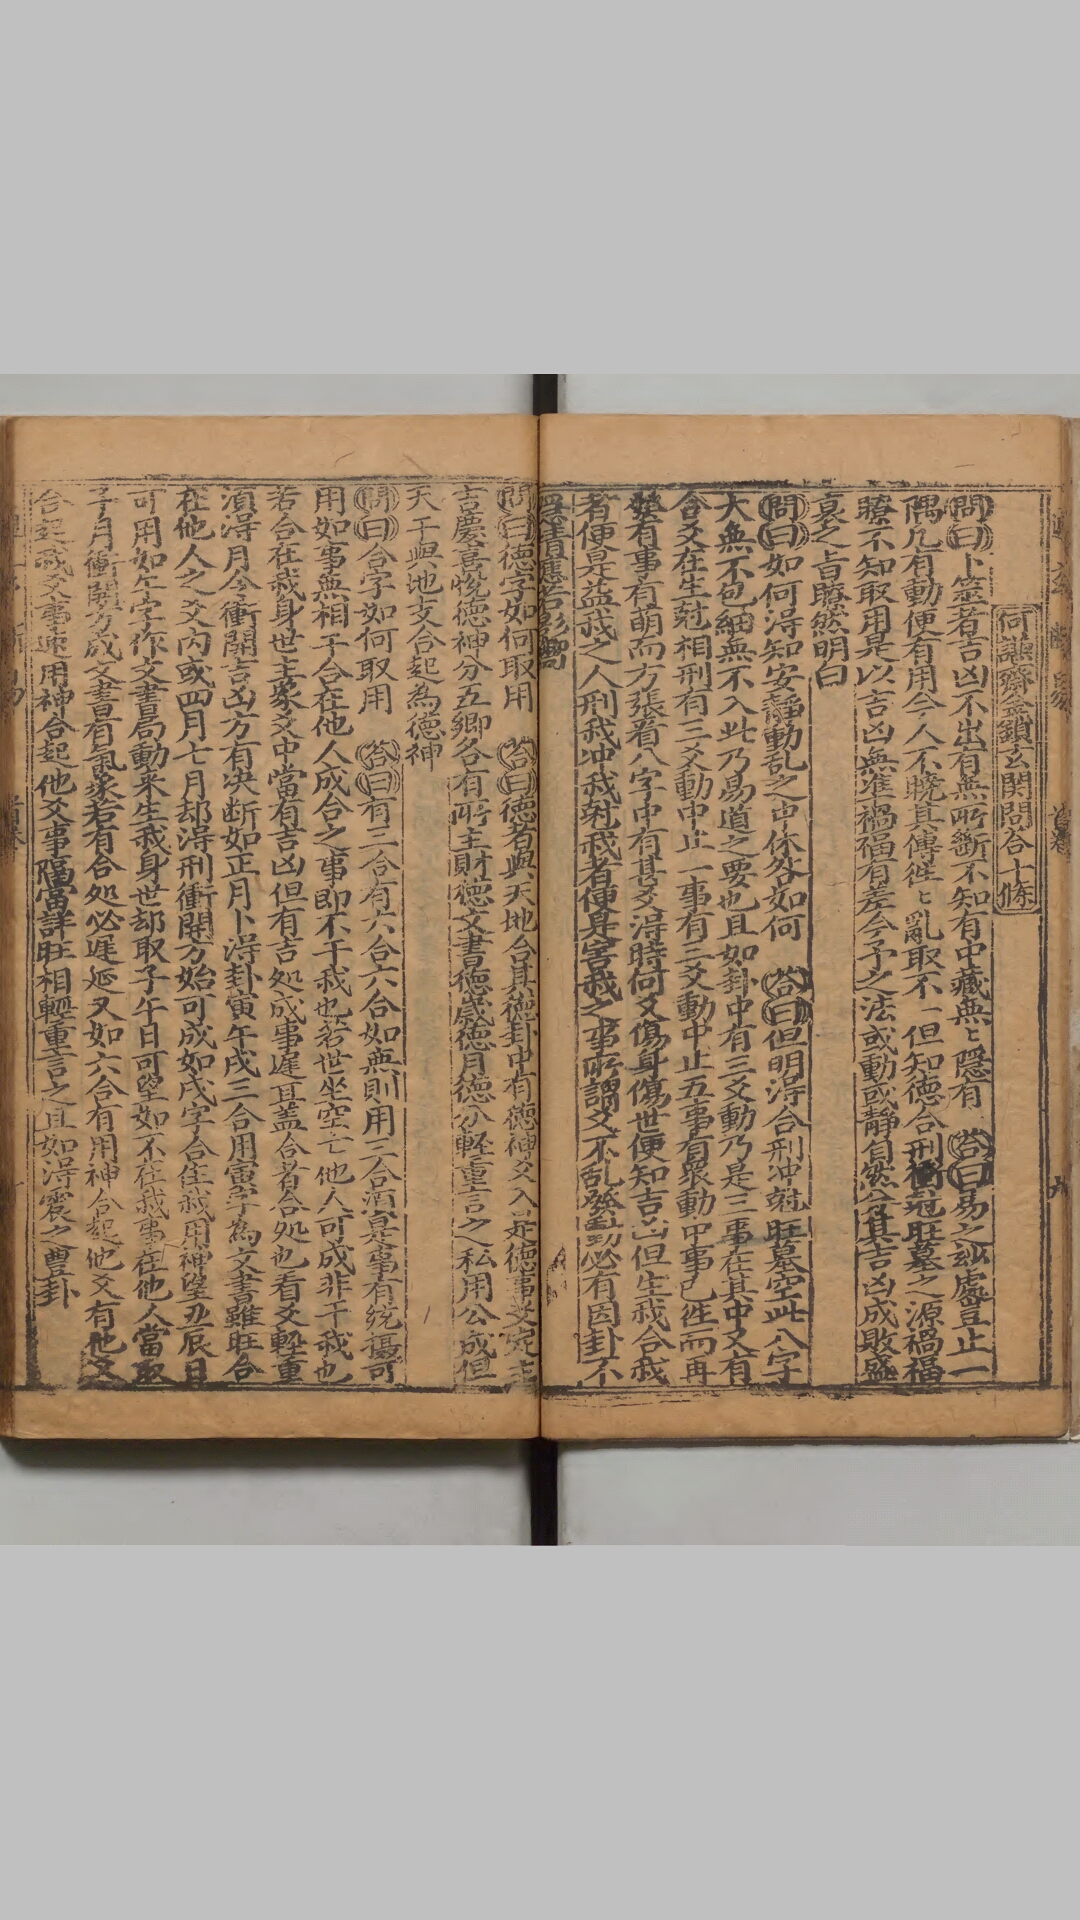 何讌齊金鎖玄関問答十條
問曰卜筮者吉凶不出有無所斷不知有中藏無〻隱有　答曰易之玅處豈止一
隅凡有動便有用今人不曉其傳徃〻亂取不一但知德合刑衝尅旺墓之源禍福
瞭不知取用是以吉凶無準禍福有差今予之法或動或靜自然分其吉凶成敗盛
衰之旨瞭然明白
問曰如何淂知安靜動乱之由休咎如何　答曰但明淂合刑冲尅旺墓空此八字
大無不包細無不入此乃易道之要也且如卦中有三爻動乃是三事在其中又有
合爻在生尅相刑有三爻動中止一事有三爻動中止五事有眾動中事已徃而再
發有事有萌而方張看八字中有甚爻淂時何爻傷身傷世便知吉凶但生我合我
者便是益我之人刑我冲我尅我者便是害我之事所謂爻不乱發動必有因卦不
應若影響
問曰德字如何取用　答曰德者與天地合其德卦中有德神爻入是德事爻定主
吉慶喜悅德神分五鄉各有所主財德文書德歲德月德分軽重言之私用公成但
天干與地支合起為德神
問曰合字如何取用　答曰有三合有六合六合如無則用三合湏是事有統攝可
用如事無相干合在他人成合之事即不干我也若世坐空亡他人可成非干我也
若合在我身世主象爻中當有吉凶但有吉処成事遲耳蓋合者合処也看爻軽重
湏淂月令衝開吉凶方有决断如正月卜淂卦寅午戌三合用寅字為文書雖旺合
在他人之爻内或四月七月却淂刑衝開方始可成如戌字合住我用神望丑辰日
可用如午字作文書局動来生我身世却取子午日可望如不在我事在他人當取
子月衝開方成文書有氣象若有合処必遲延又如六合有用神合起他爻有他爻
合起我爻事速用神合起他爻事隔當詳旺相輕重言之且如淂震之豐卦